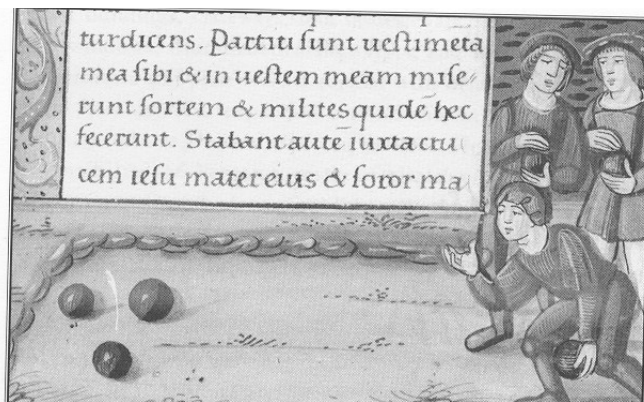 turdicens. Partiti sunt uestimēta
mea sibi & in uestem meam mise⸗
runt sortem & milites quidē hec
fecerunt. Stabant autē iuxta cru
cem iesu mater eius & soror ma